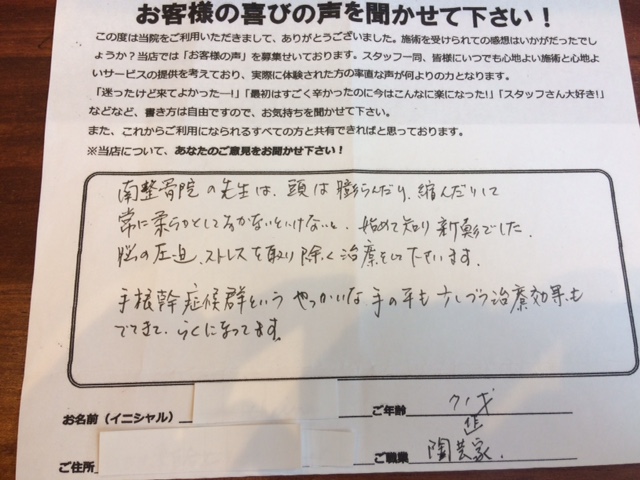 お客様の喜びの声を聞かせて下さい！
この度は当院をご利用いただきまして、ありがとうございました。施術を受けられての感想はいかがだったでし
ょうか？当店では「お客様の声」を募集せいております。スタッフ一同、皆様にいつでも心地よい施術と心地よ
いサービスの提供を考えており、実際に体験された方の率直な声が何よりの力となります。
「迷ったけど来てよかったー！」「最初はすごく辛かったのに今はこんなに楽になった！」「スタッフさん大好き！」
などなど、書き方は自由ですので、お気持ちを聞かせて下さい。
また、これからご利用になられるすべての方と共有できればと思っております。
※当店について、あなたのご意見をお聞かせ下さい！
南整骨院の先生は、頭は膨らんだり、縮んだりして
常に柔らかとしておかないといけないと、始めて知り新鮮でした。
脳の圧迫、ストレスを取り除く治療をして下さいます。
手根幹症候群という やっかいな手の平も 少しづつ治療効果も
でてきて、らくになってます。
お名前（イニシャル） ご年齢
ご住所 ご職業 陶芸家.